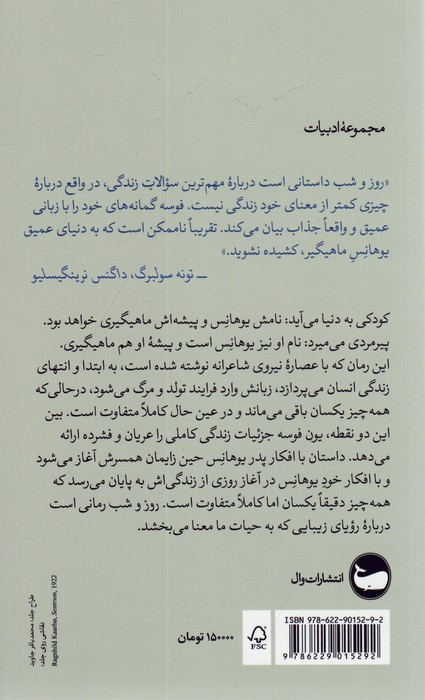 مجموعهٔ ادبیات
«روز و شب داستانی است دربارهٔ مهم‌ترین سؤالاتِ زندگی، در واقع دربارهٔ
چیزی کمتر از معنای خود زندگی نیست. فوسه گمانه‌های خود را با زبانی
عمیق و واقعاً جذاب بیان می‌کند. تقریباً ناممکن است که به دنیای عمیق
یوهانِس ماهیگیر، کشیده نشوید.»
ــ تونه سولبرگ، داگنس نرینگیسلیو
کودکی به دنیا می‌آید: نامش یوهانِس و پیشه‌اش ماهیگیری خواهد بود.
پیرمردی می‌میرد: نام او نیز یوهانِس است و پیشهٔ او هم ماهیگیری.
این رمان که با عصارهٔ نیروی شاعرانه نوشته شده است، به ابتدا و انتهای
زندگی انسان می‌پردازد، زبانش وارد فرایند تولد و مرگ می‌شود، درحالی‌که
همه‌چیز یکسان باقی می‌ماند و در عین حال کاملاً متفاوت است. بین
این دو نقطه، یون فوسه جزئیات زندگی کاملی را عریان و فشرده ارائه
می‌دهد. داستان با افکار پدر یوهانِس حین زایمان همسرش آغاز می‌شود
و با افکار خودِ یوهانِس در آغاز روزی از زندگی‌اش به پایان می‌رسد که
همه‌چیز دقیقاً یکسان اما کاملاً متفاوت است. روز و شب رمانی است
دربارهٔ رؤیای زیبایی که به حیات ما معنا می‌بخشد.
انتشارات وال
طراح جلد: محمدباقر جاوید
نقاشی روی جلد:
Ragnhild Kaarbø, Sentrum, 1922
۱۵۰۰۰۰ تومان
FSC
ISBN 978-622-90152-9-2
9 786229 015292